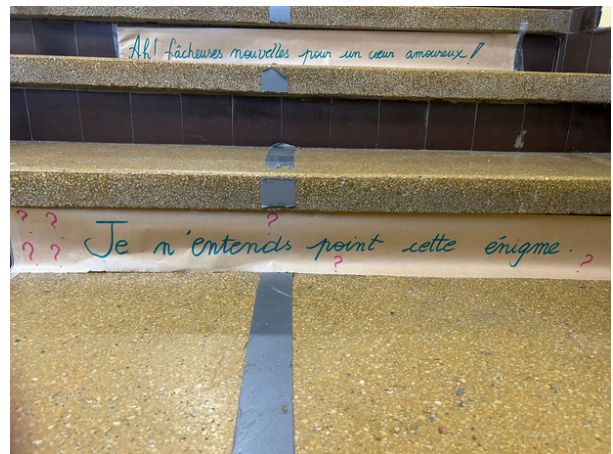 Ah! fâcheuses nouvelles pour un cœur amoureux!
? ? ?
Je n'entends point cette énigme.
? ? ? ?